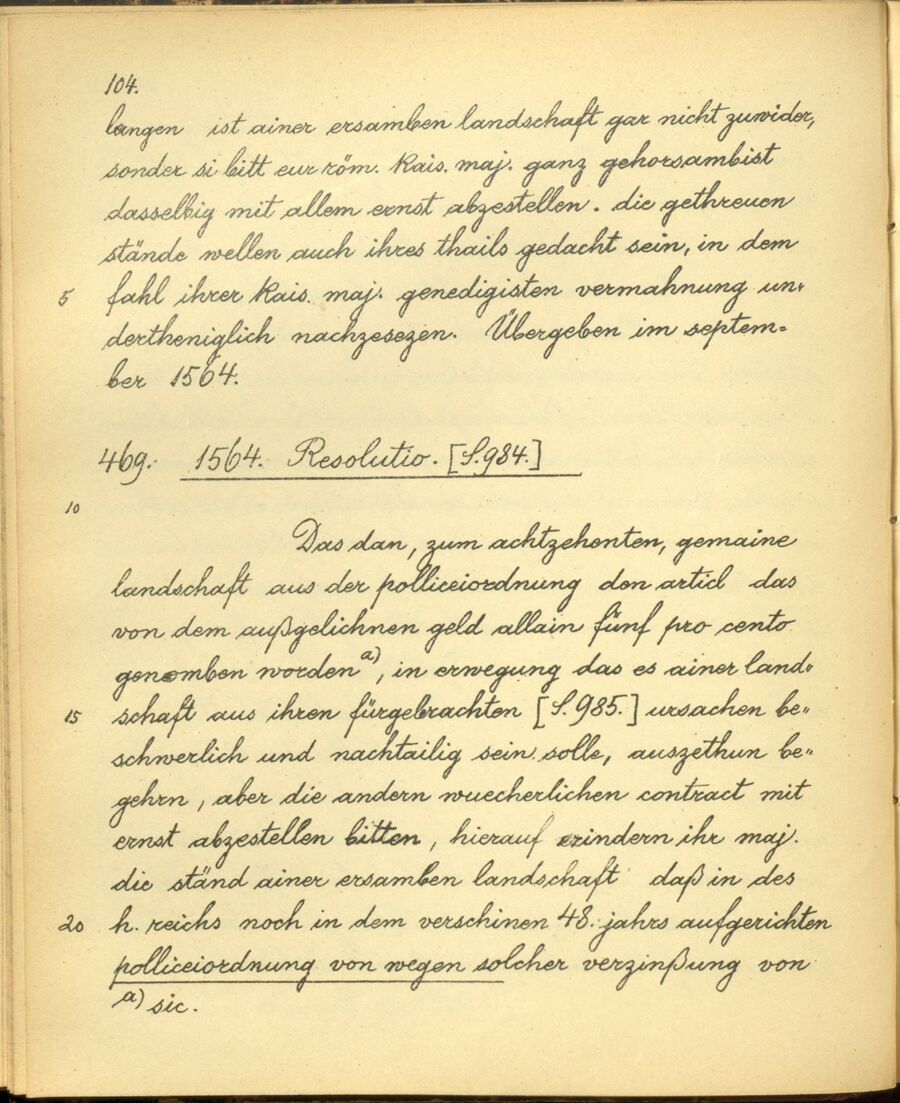 104.
langen ist ainer ersamben landschaft gar nicht zuwider,
sonder si bitt eur röm. Kais. maj. ganz gehorsambist
dasselbig mit allem ernst abzestellen. die gethreuen
stände wellen auch ihres thails gedacht sein, in dem
5 fahl ihrer Kais. maj. genedigisten vermahnung un-
dertheniglich nachzesezen. Übergeben im septem-
ber 1564.
469. 1564. Resolutio. [S. 984.]
10
Das dan, zum achtzehenten, gemaine
landschaft aus der polliceiordnung den articl das
von dem außgelichnen geld allain fünf pro cento
genomben worden a), in erwegung das es ainer land-
15 schaft aus ihren fürgebrachten [S. 985.] ursachen be-
schwerlich und nachtailig sein solle, auszethun be-
gehrn, aber die andern wuecherlichen contract mit
ernst abzestellen bitten, hierauf erindern ihr maj.
die ständ ainer ersamben landschaft daß in des
20 h. reichs noch in dem verschinen 48. jahrs aufgerichten
polliceiordnung von wegen solcher verzinßung von
a) sic.